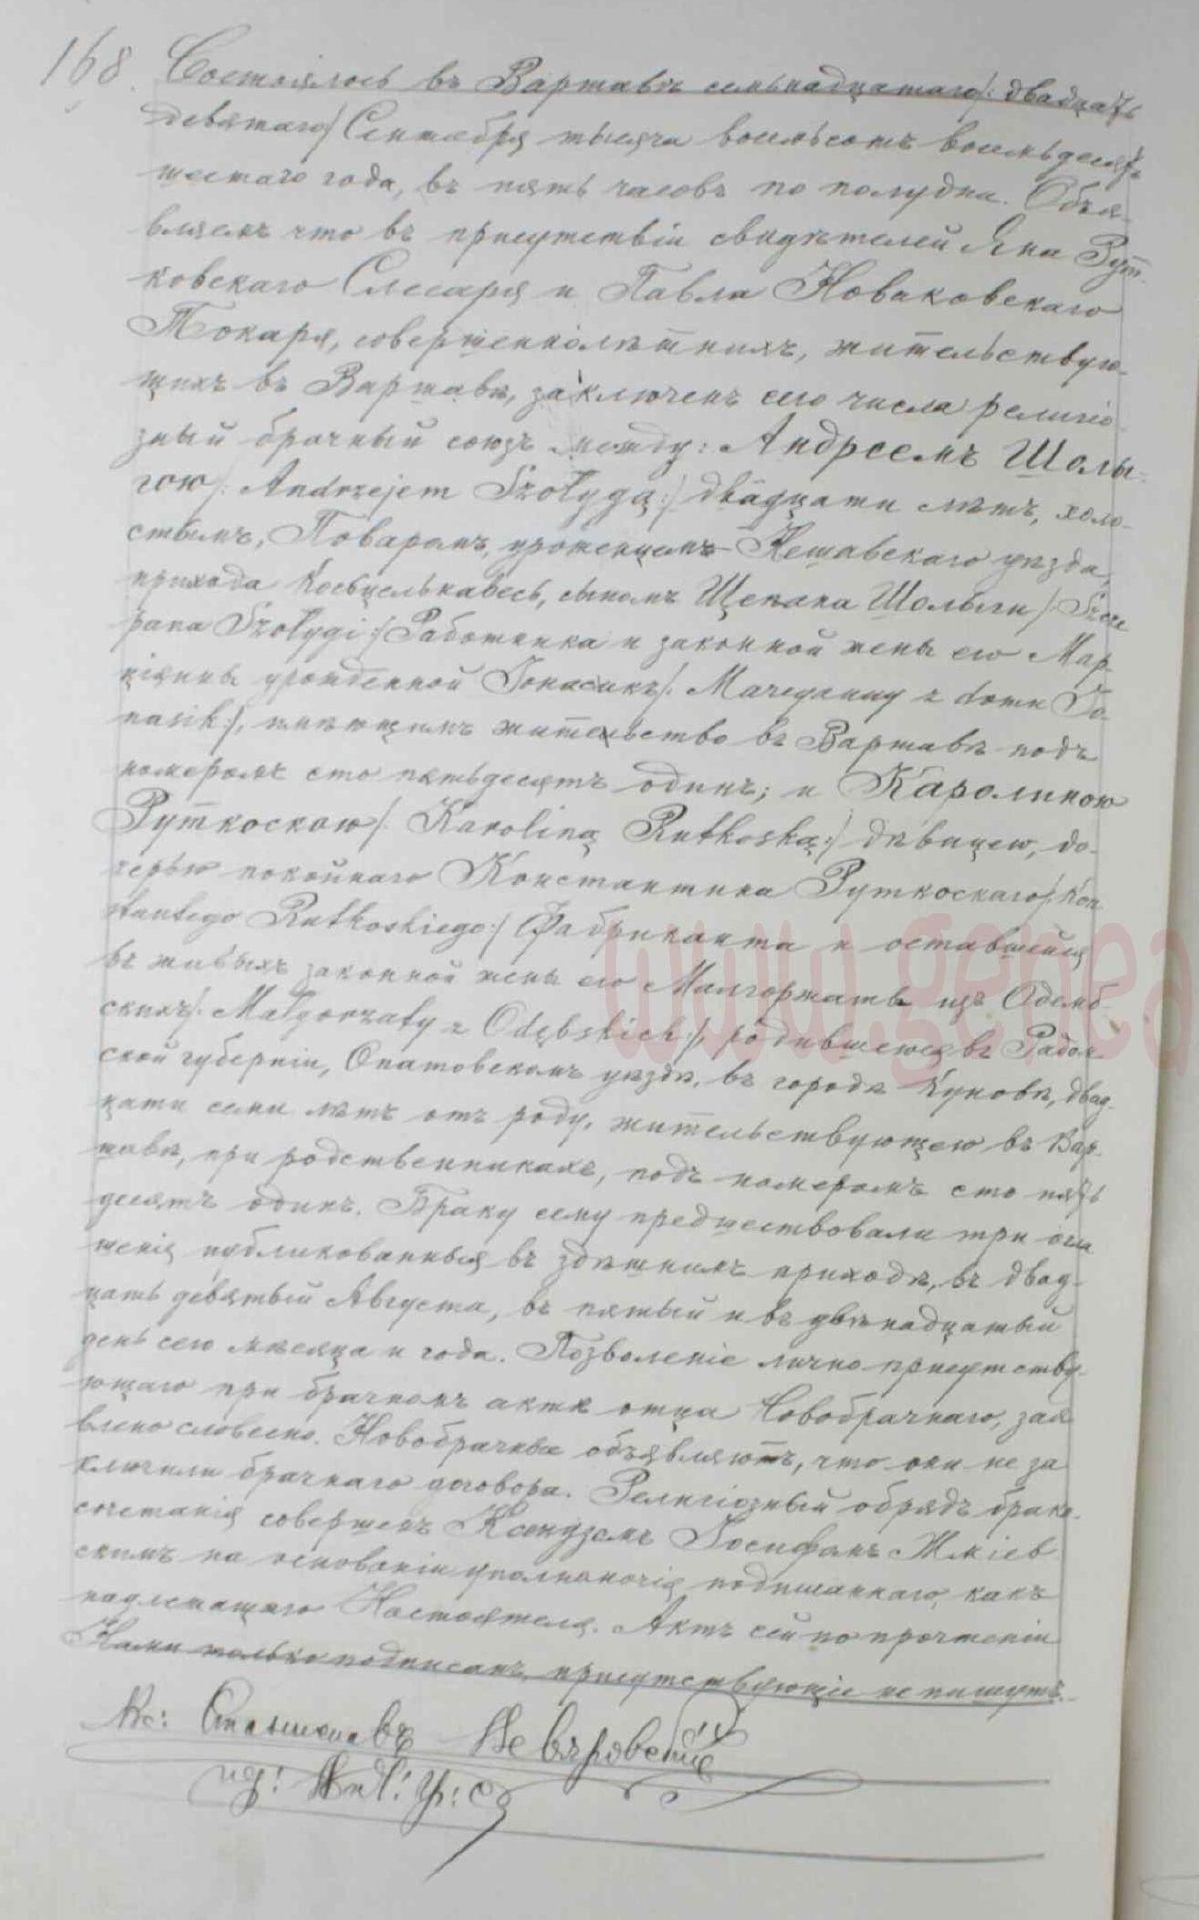 168. Состоялось въ Варшавѣ семьнадцатаго /: двадцать
девятаго/ Сентября тысяча восемьсотъ восемьдесятъ
шестаго года, въ пять часовъ по полудни. Объя-
вляемъ что въ присутствіи свидѣтелей Яна Рут-
ковскаго Слесаря и Павла Новаковскаго
Токаря, совершеннолѣтнихъ, жительствую-
щихъ въ Варшавѣ, заключенъ сего числа религіо-
зный брачный союзъ между: Андреемъ Шолы-
гою /: Andrzejem Szołygą :/ двадцати лѣтъ, холо-
стымъ, Поваромъ, уроженцемъ Нешавскаго уѣзда,
прихода Косьцелькавесь, сыномъ Щепана Шолыги /: Szcze
pana Szołygi :/ Работника и законной жены его Мар
ціянны урожденной Іонасикъ /: Marcyanny z domu Jo-
nasik :/, имѣющимъ жительство въ Варшавѣ подъ
номеромъ сто пятьдесятъ одинъ; и Каролиною
Руткоскою /: Karoliną Rutkoską :/ дѣвицею, до-
черью покойнаго Константина Руткоскаго /: Kon
stantego Rutkoskiego :/ Фабриканта и оставшейся
въ живыхъ законной жены его Малгоржаты изъ Одемб-
скихъ /: Małgorzaty z Odębskich :/, родившеюся въ Радом
ской губерніи, Опатовскомъ уѣздѣ, въ городѣ Куновѣ, двад-
цати семи лѣтъ отъ роду, жительствующею въ Вар-
шавѣ, при родственникахъ, подъ номеромъ сто пять
десятъ одинъ. Браку сему предшествовали три огла
шенія публикованныя въ здѣшнемъ приходѣ, въ двад-
цать девятый Августа, въ пятый и въ двѣнадцатый
день сего мѣсяца и года. Позволеніе лично присутству-
ющаго при брачномъ актѣ отца Новобрачнаго, зая
влено словесно. Новобрачные объявляютъ, что они не за
ключили брачнаго договора. Религіозный обрядъ брако-
сочетанія совершенъ Ксендзомъ Іосифомъ Жміев
скимъ на основаніи уполномочія подписаннаго, какъ
надлежащаго Настоятеля. Актъ сей по прочтеніи
Нами только подписанъ, присутствующіе не пишутъ.
Кс: Станиславъ Невяровскій
www.genea